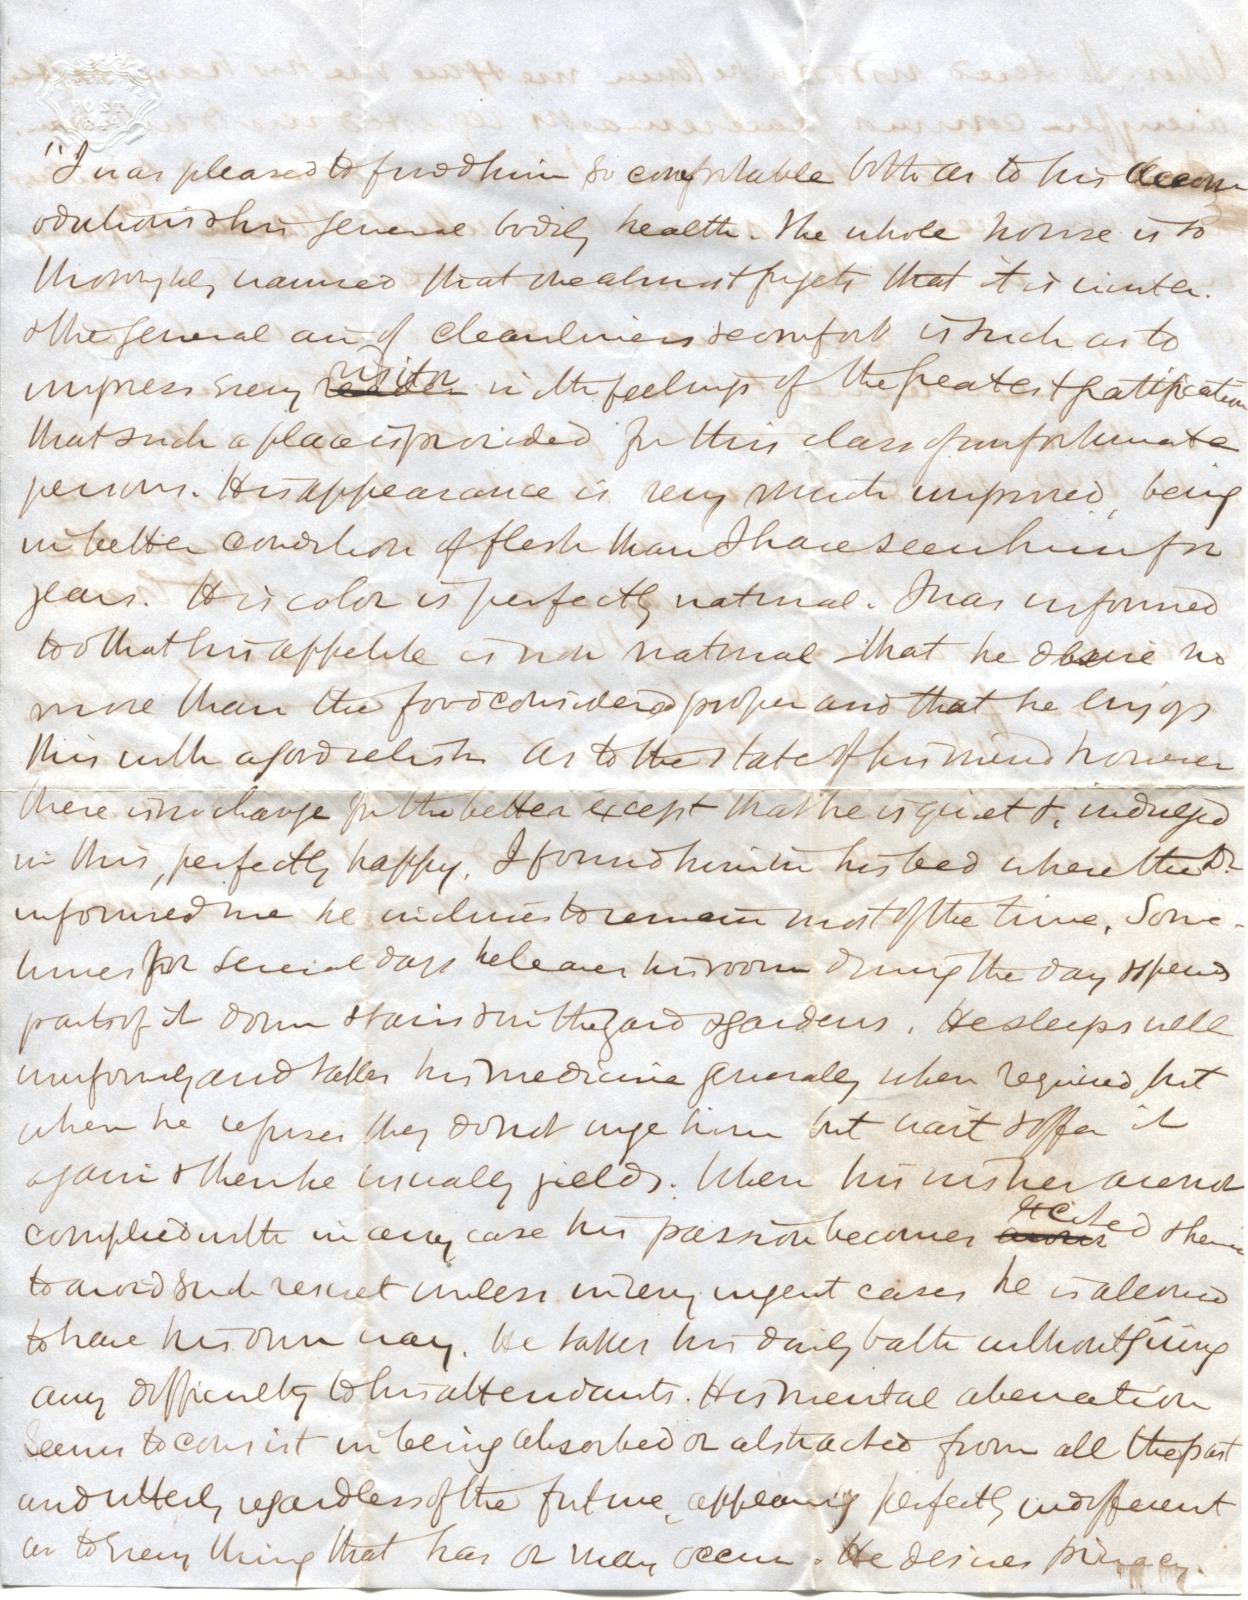 POST
1844
"I was pleased to find him so comfortable both as to his accom
odations & his general bodily health. The whole house is so
thoroughly warmed that one almost forgets that it is winter.
& the general air of cleanliness & comfort is such as to
impress every visitor with feelings of the greatest gratification
that such a place is provided for this class of unfortunate
persons. His appearance is very much improved, being
in better condition of flesh than I have seen him for
years. His color is perfectly natural. I was informed
too that his appetite is now natural that he desires no
more than the food considered proper and that he enjoys
this with a good relish. As to the state of his mind however
there is no change for the better except that he is quiet &, indulged
in this, perfectly happy. I found him in his bed where the Dr
informed me he inclines to remain most of the time. Some-
times for several days he leaves his room during the day & spends
parts of it down stairs & in the yard & gardens. He sleeps well
uniformly and takes his medicine generally when required, but
when he refuses they do not urge him but wait & offer it
again & then he usually yields. When his wishes are not
complied with in any case his passion becomes excited & hence
to avoid such result unless in very urgent cases he is allowed
to have his own way. He takes his daily bath without giving
any difficulty to his attendants. His mental aberration
seems to consist in being absorbed or abstracted from all the past
and utterly regardless of the future, appearing perfectly indifferent
as to every thing that has or may occur. He desires privacy.